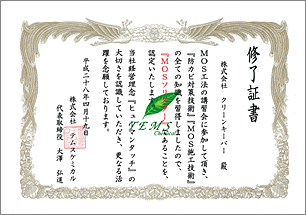 修了証書
株式会社 クリーンキーパー 殿
MOS工法の講習会に参加して頂き、
『防カビ対策技術』『MOS施工技術』
の全ての知識を習得しましたので、
『MOSソリューター』であることを、
認定いたします。
当社経営理念『ヒューマンタッチ』の
大切さを認識していただき、更なる活
躍を念願しております。
平成二十八年四月十九日
株式会社 テムズケミカル
代表取締役 大澤 弘道
TEMS
Chemical